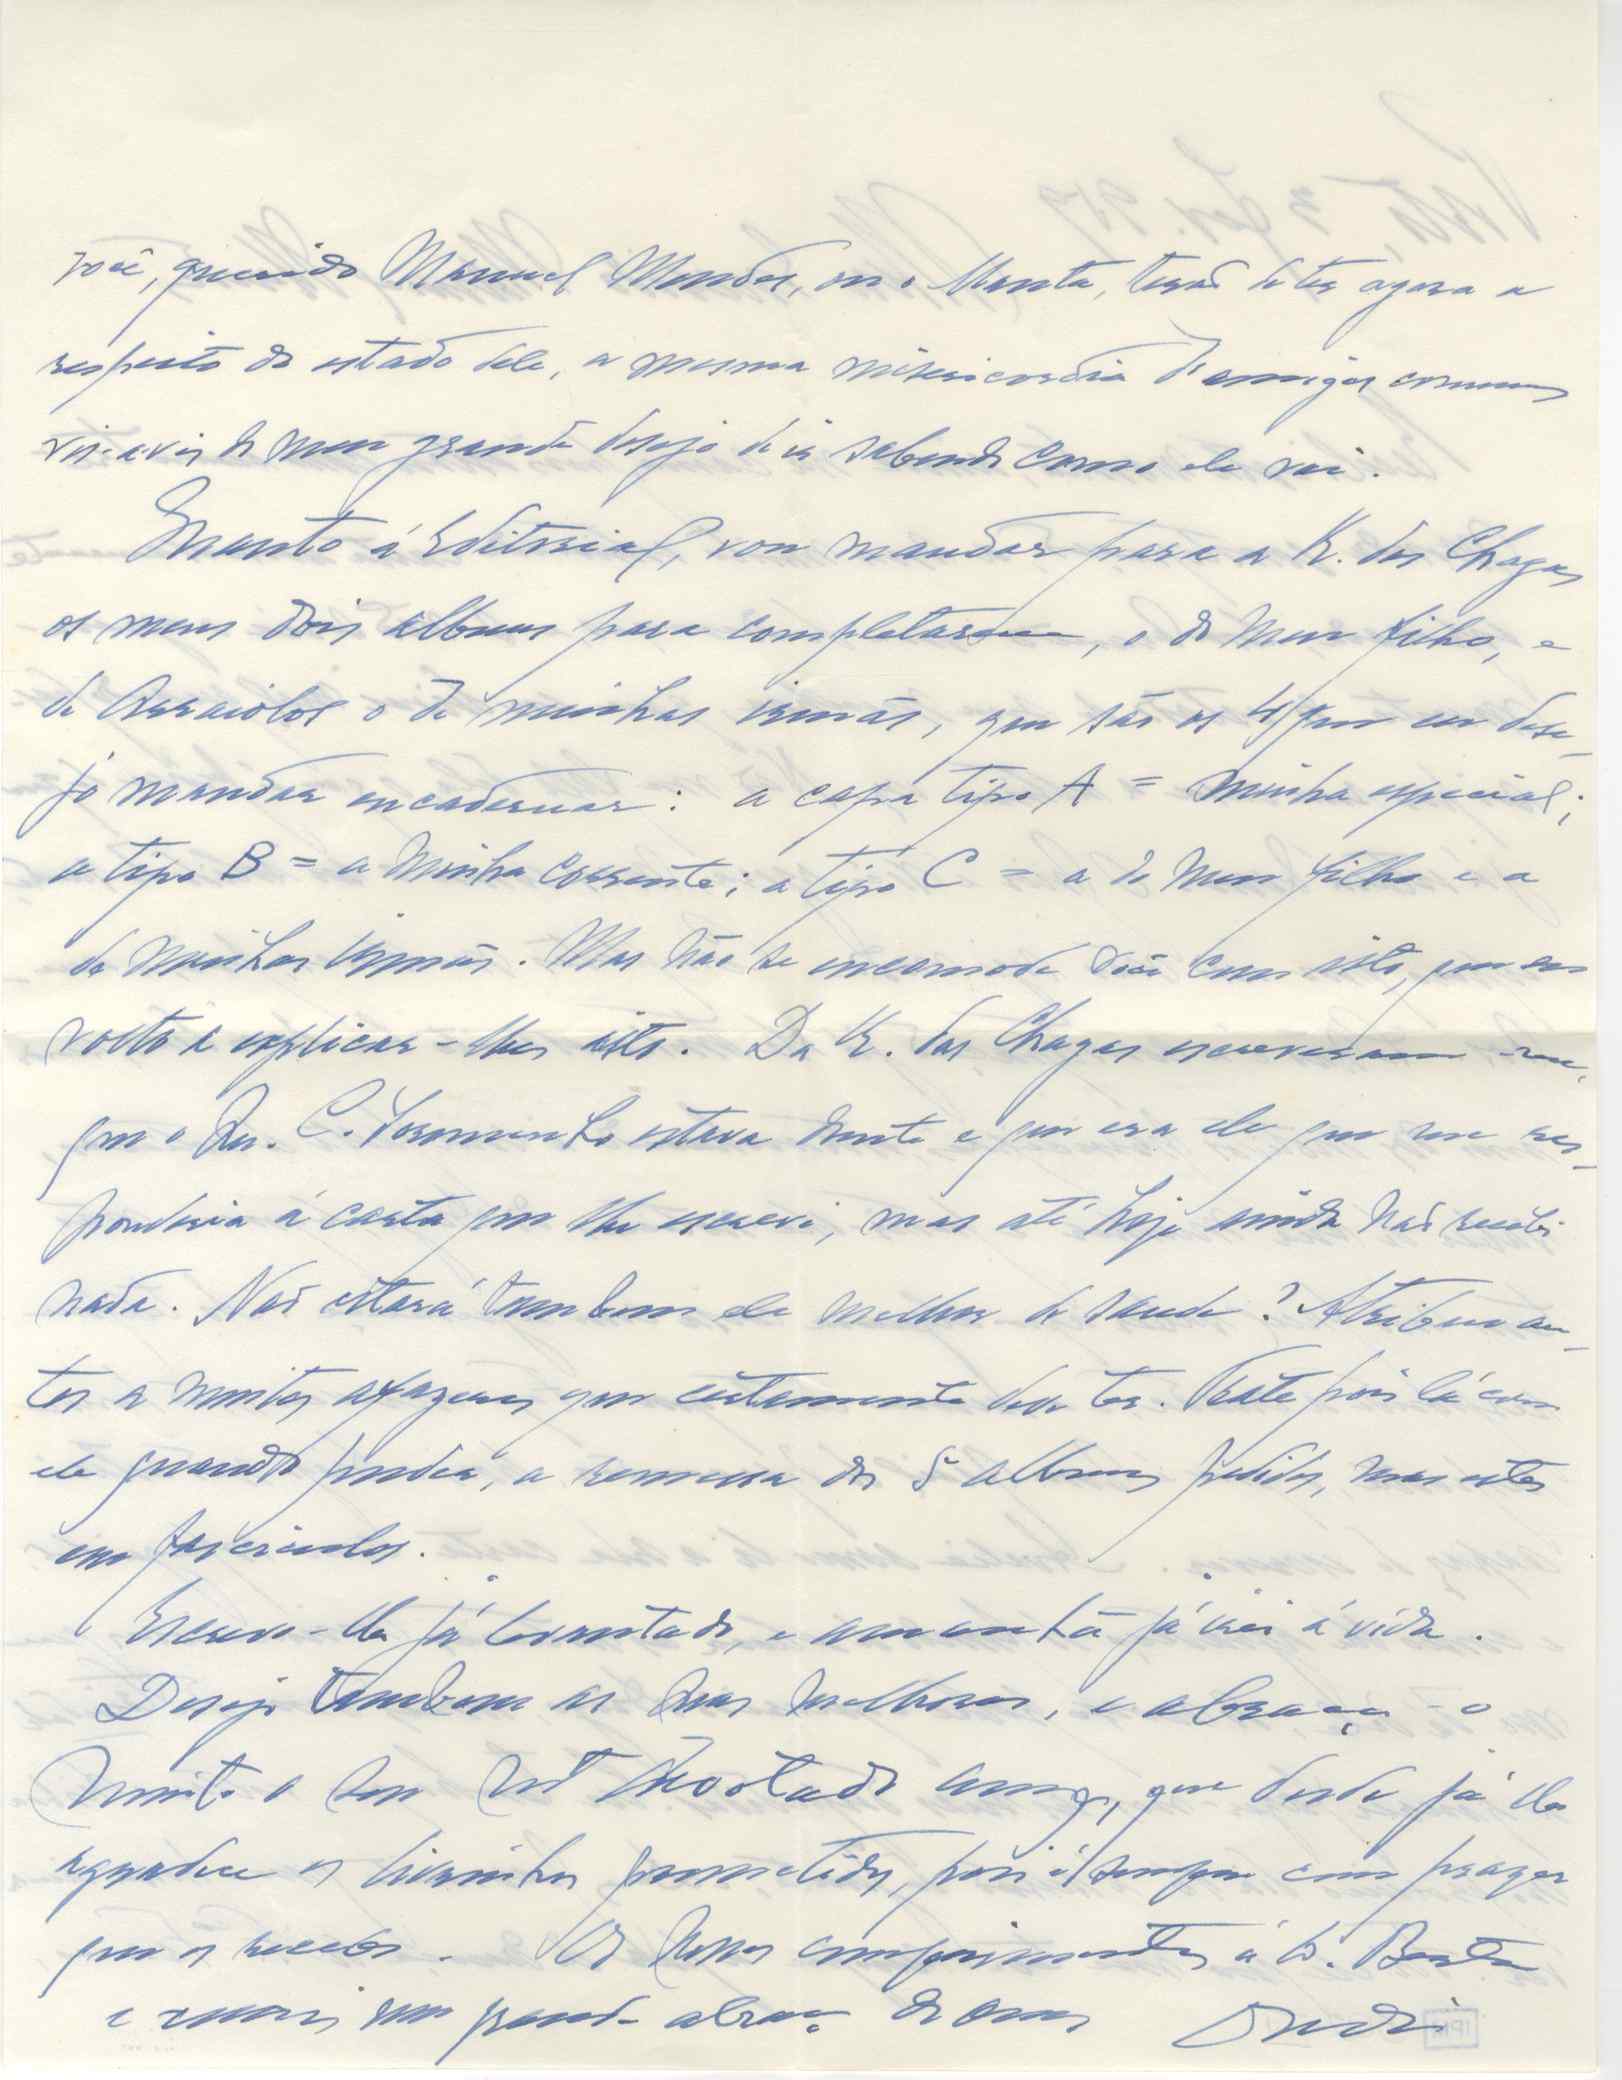 você, querido Manuel Mendes, ou o Manta, terão de ter agora a
respeito do estado dele, a mesma misericordia de amigos comuns
vis-a-vis do meu grande desejo de ir sabendo como ele vai.
Quanto á Editorial, vou mandar para a R. das Chagas
os meus dois albuns para completarem, o do meu filho, e
de Arraiolos o de minhas irmãs, que são os 4 que eu dese-
jo mandar encadernar: a capa tipo A = minha especial;
a tipo B = a minha corrente; a tipo C = a de meu filho e a
de minhas irmãs. Mas não se encomode você com isto, que eu
volto a explicar-lhes isto. Da R. das Chagas escreveram-me,
que o Snr. C. estava doente e que era ele que me res-
ponderia á carta que lhe escrevi, mas até hoje ainda não recebi
nada. Não estará tambem ele melhor de saude? Atribuo an-
tes a muitos afazeres que certamente deve ter. Trate pois lá com
ele quando puder, a remessa dos 5 albuns pedidos, mas estes
em fasciculos.
Escrevo-lhe já levantado, e amanhã já irei á vida.
Desejo tambem as suas melhoras, e abraça-o
muito o seu mt devotado amigo, que desde já lhe
agradece os livrinhos prometidos, pois é sempre com prazer
que os recebo. Os nossos cumprimentos á D. Berta
e mais um grande abraço do seu André
IPM